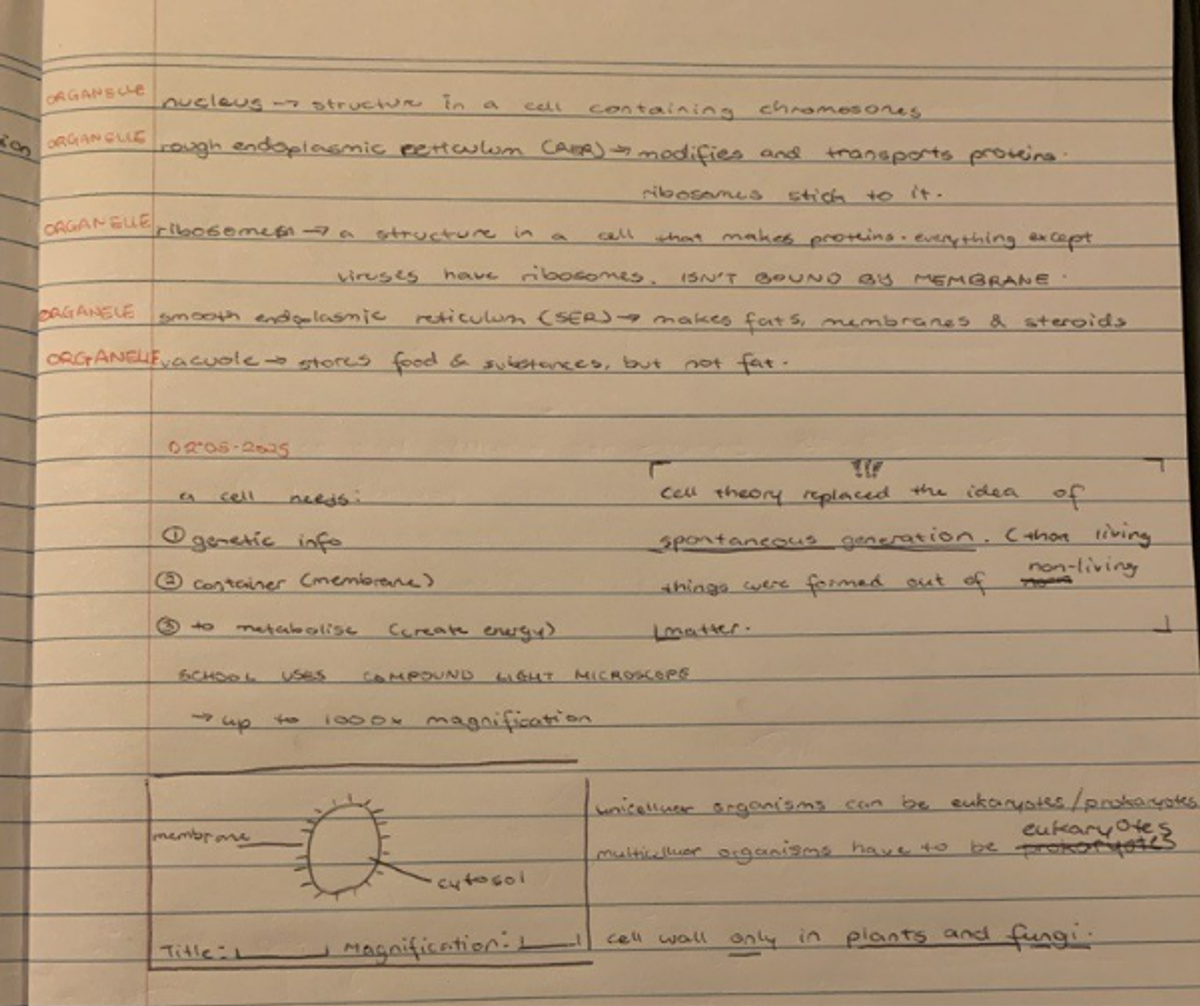 ion
ORGANELLE nucleus → structure in a cell containing chromosones
ORGANELLE rough endoplasmic reticulum (RER) → modifies and transports proteins.
ribosomes stick to it.
ORGANELLE ribosomes → a structure in a cell that makes proteins. everything except
viruses have ribosomes. ISN'T BOUND BY MEMBRANE.
ORGANELE smooth endoplasmic reticulum (SER) → makes fats, membranes & steroids
ORGANELLE vacuole → stores food & substances, but not fat.
02-05-2025
a cell needs:
① genetic info
② container (membrane)
③ to metabolise (create energy)
!!!
cell theory replaced the idea of
spontaneous generation. (that living
things were formed out of non-living
matter.
SCHOOL USES COMPOUND LIGHT MICROSCOPE
→ up to 1000x magnification
membrane
cytosol
Title: Magnification:
unicelluer organisms can be eukaryotes/prokaryotes
multicelluer organisms have to be prokaryotes eukaryotes
cell wall only in plants and fungi.